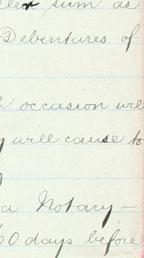 sum as
Debentures of
occasion
will cause to
a Notary -
60 days before